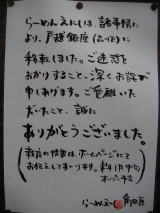 らーめんえにしは、諸事情に
より、戸越銀座(品川区)に
移転しました。ご迷惑を
おかけすること、深くお詫び
申しあります。ご愛顧いた
だいたこと、誠に
ありがとうございました。
新店の情報は、ホームページにて
お伝えしてまいります。
オープン予定
らーめん